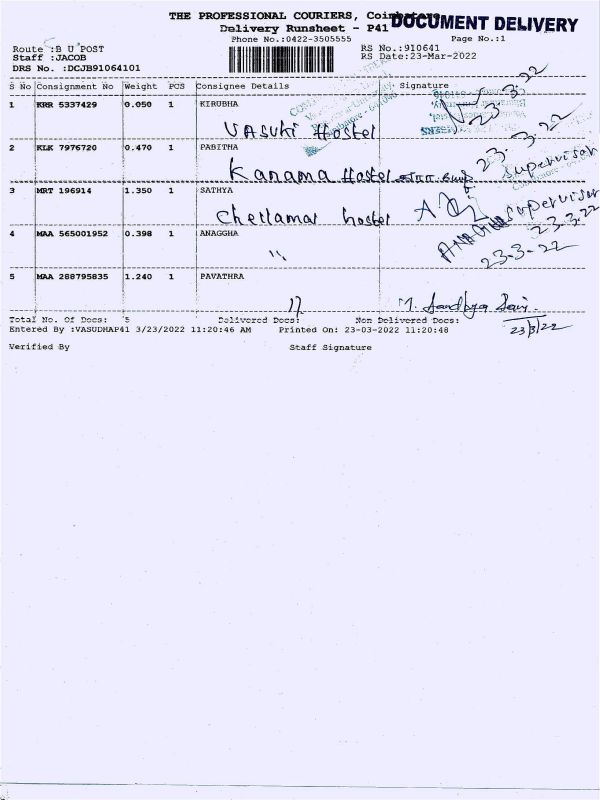 THE PROFESSIONAL COURIERS,
DOCUMENT DELIVERY
Delivery Runsheet - P41
Phone No.:0422-3505555
Page No.:1
Route :B U POST
RS No.:910641
Staff :JACOB
RS Date:23-Mar-2022
DRS No. :DCJB91064101
S No Consignment No Weight PCS Consignee Details Signature
1 KRR 5337429 0.050 1 KIRUBHA
VASUKI Hostel 23-3-22
2 KLK 7976720 0.470 1 PABITHA
Kanama Hostel 23-3-22 Supervisor
3 MRT 196914 1.350 1 SATHYA
Chellamal hostel Supervisor 23-3-22
4 MAA 565001952 0.398 1 ANAGGHA
" ANAGHA 23-3-22
5 MAA 288795835 1.240 1 PAVATHRA
M.
Total No. Of Docs: 5 Delivered Docs: Non Delivered Docs:
23/3/22
Entered By :VASUDHAP41 3/23/2022 11:20:46 AM Printed On: 23-03-2022 11:20:48
Verified By Staff Signature